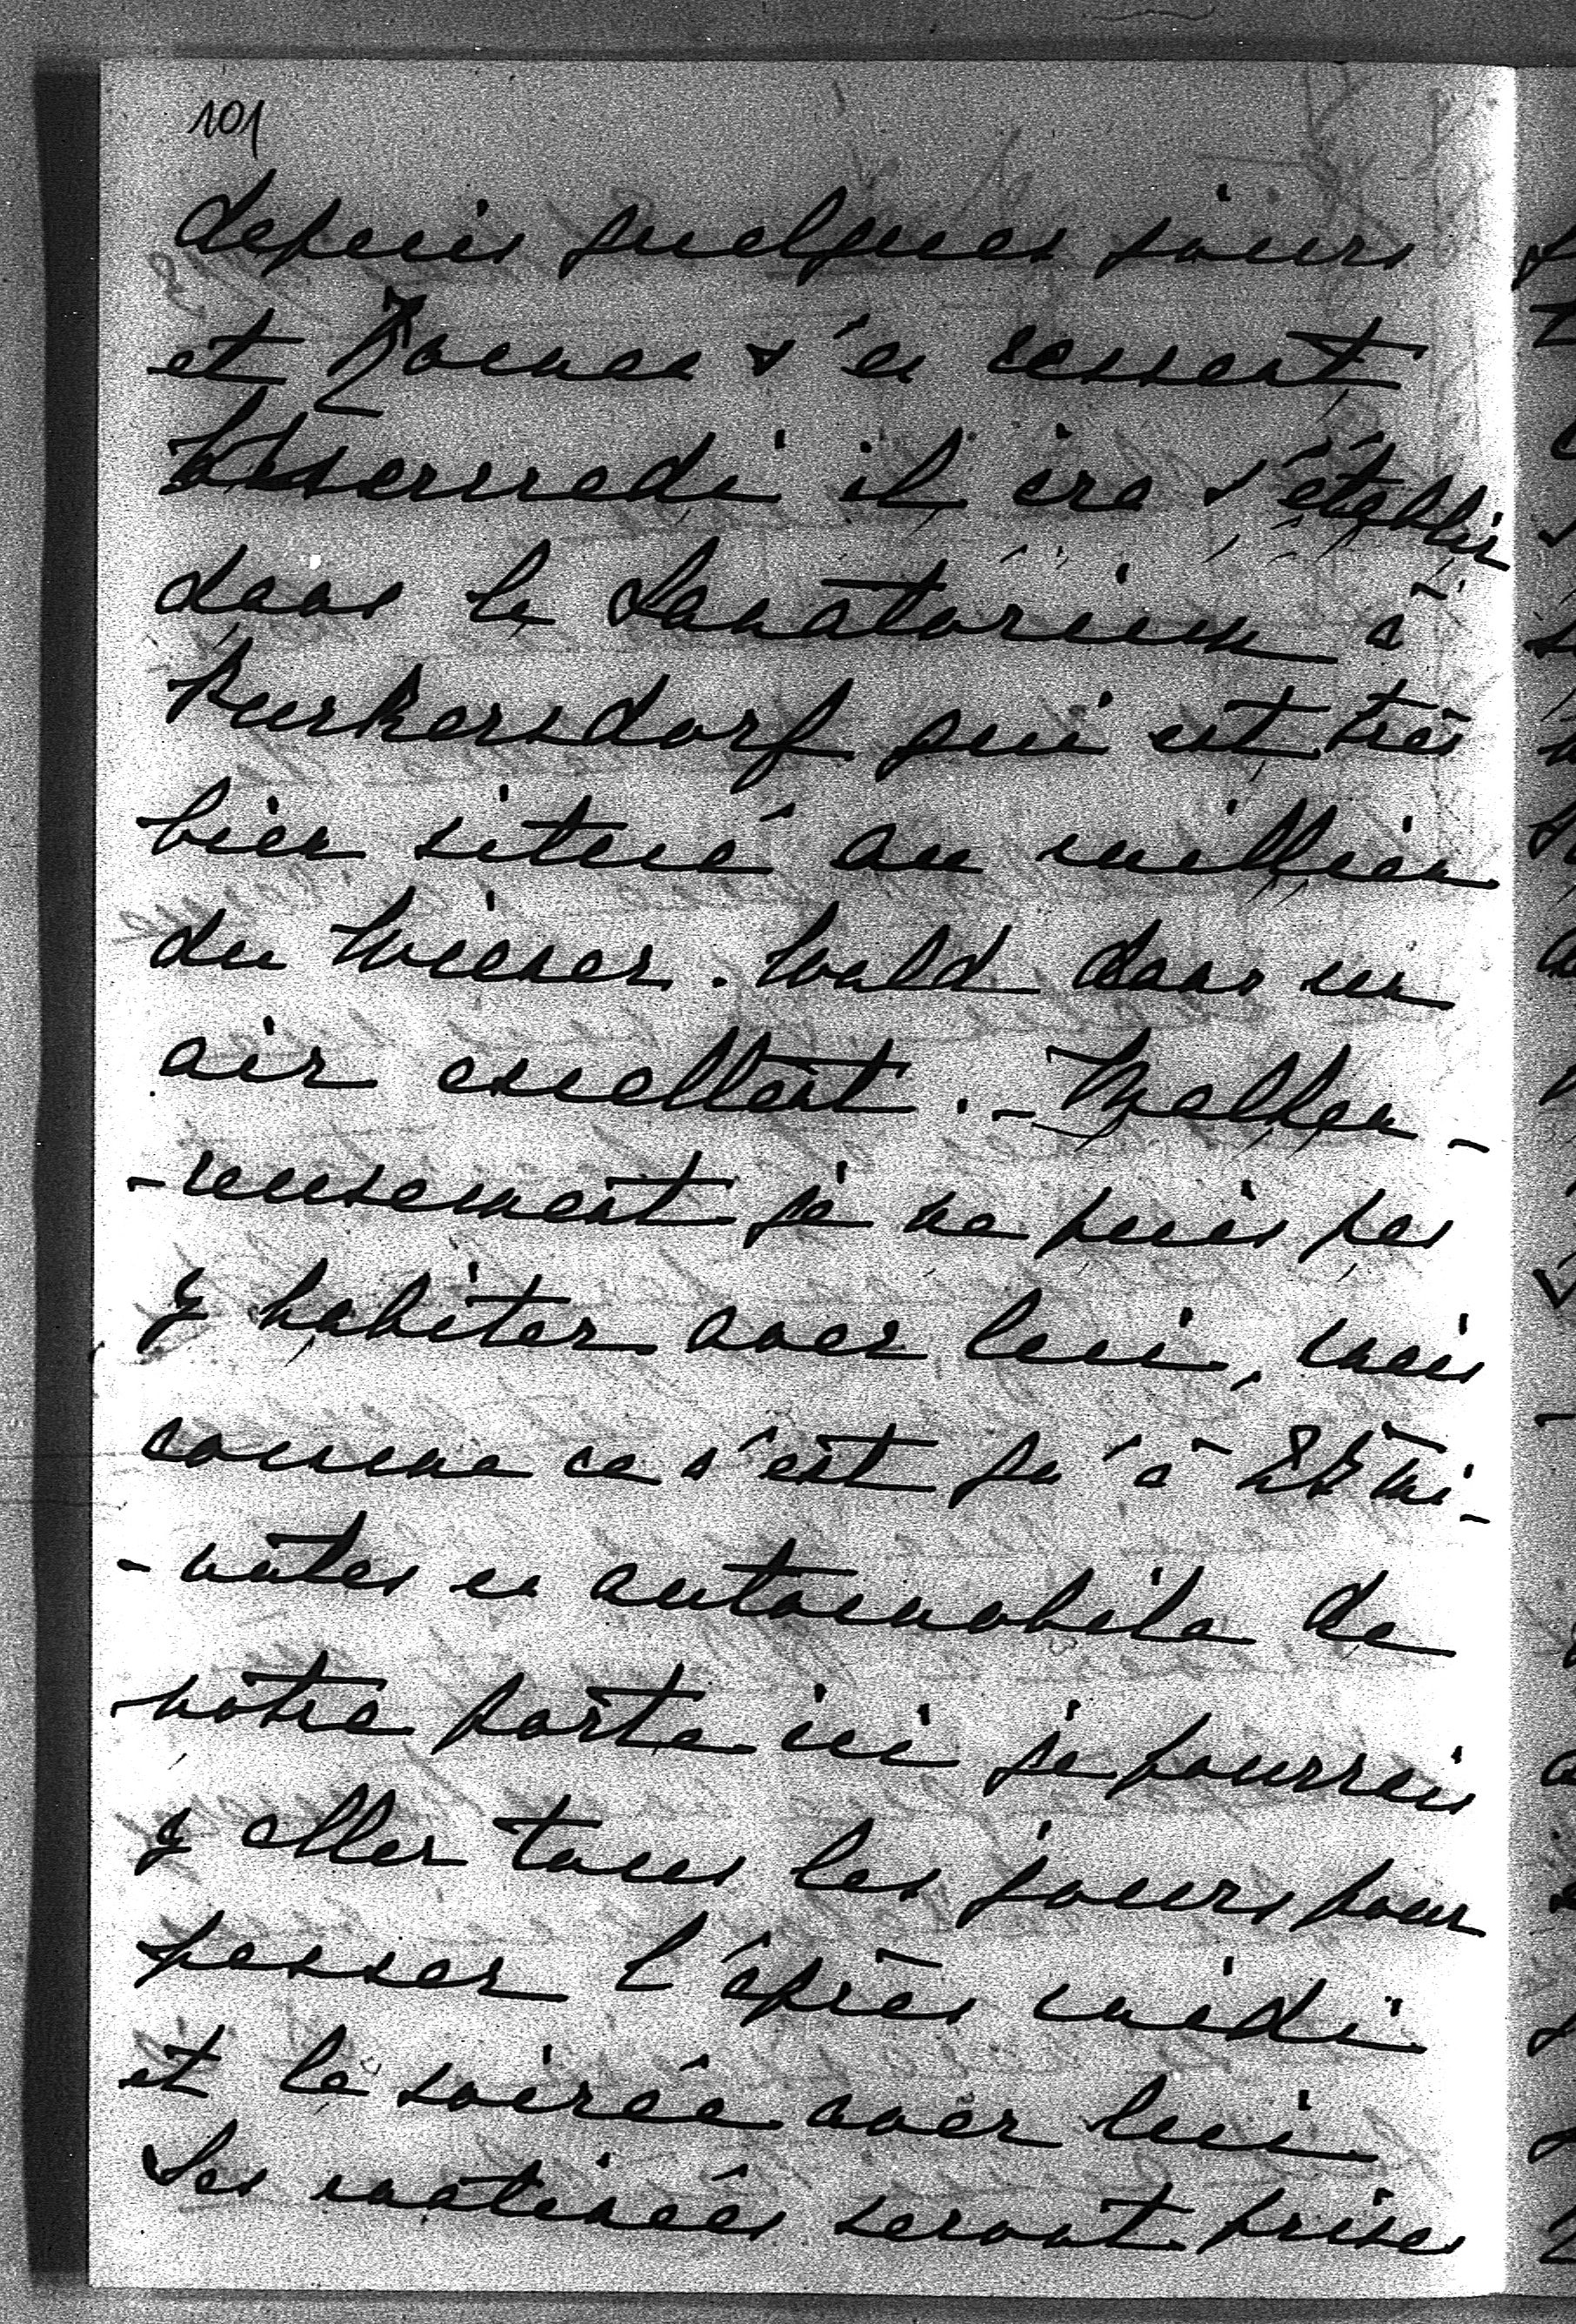 101
depuis quelques jours
et s'en ressent
il ira s'établir
dans le Sanatorium à
Purkersdorf qui est très
bien situé au millieu
du Wiener-Wald dans un
air excellent. - Malheu-
-reusement je ne puis pas
y habiter avec lui, mais
comme ce n'est qu'à mi-
-nutes en automobile de
notre porte ici je pourrais
y aller tous les jours pour
passer l'après midi
et la soirée avec lui
Ses matinées seront prises